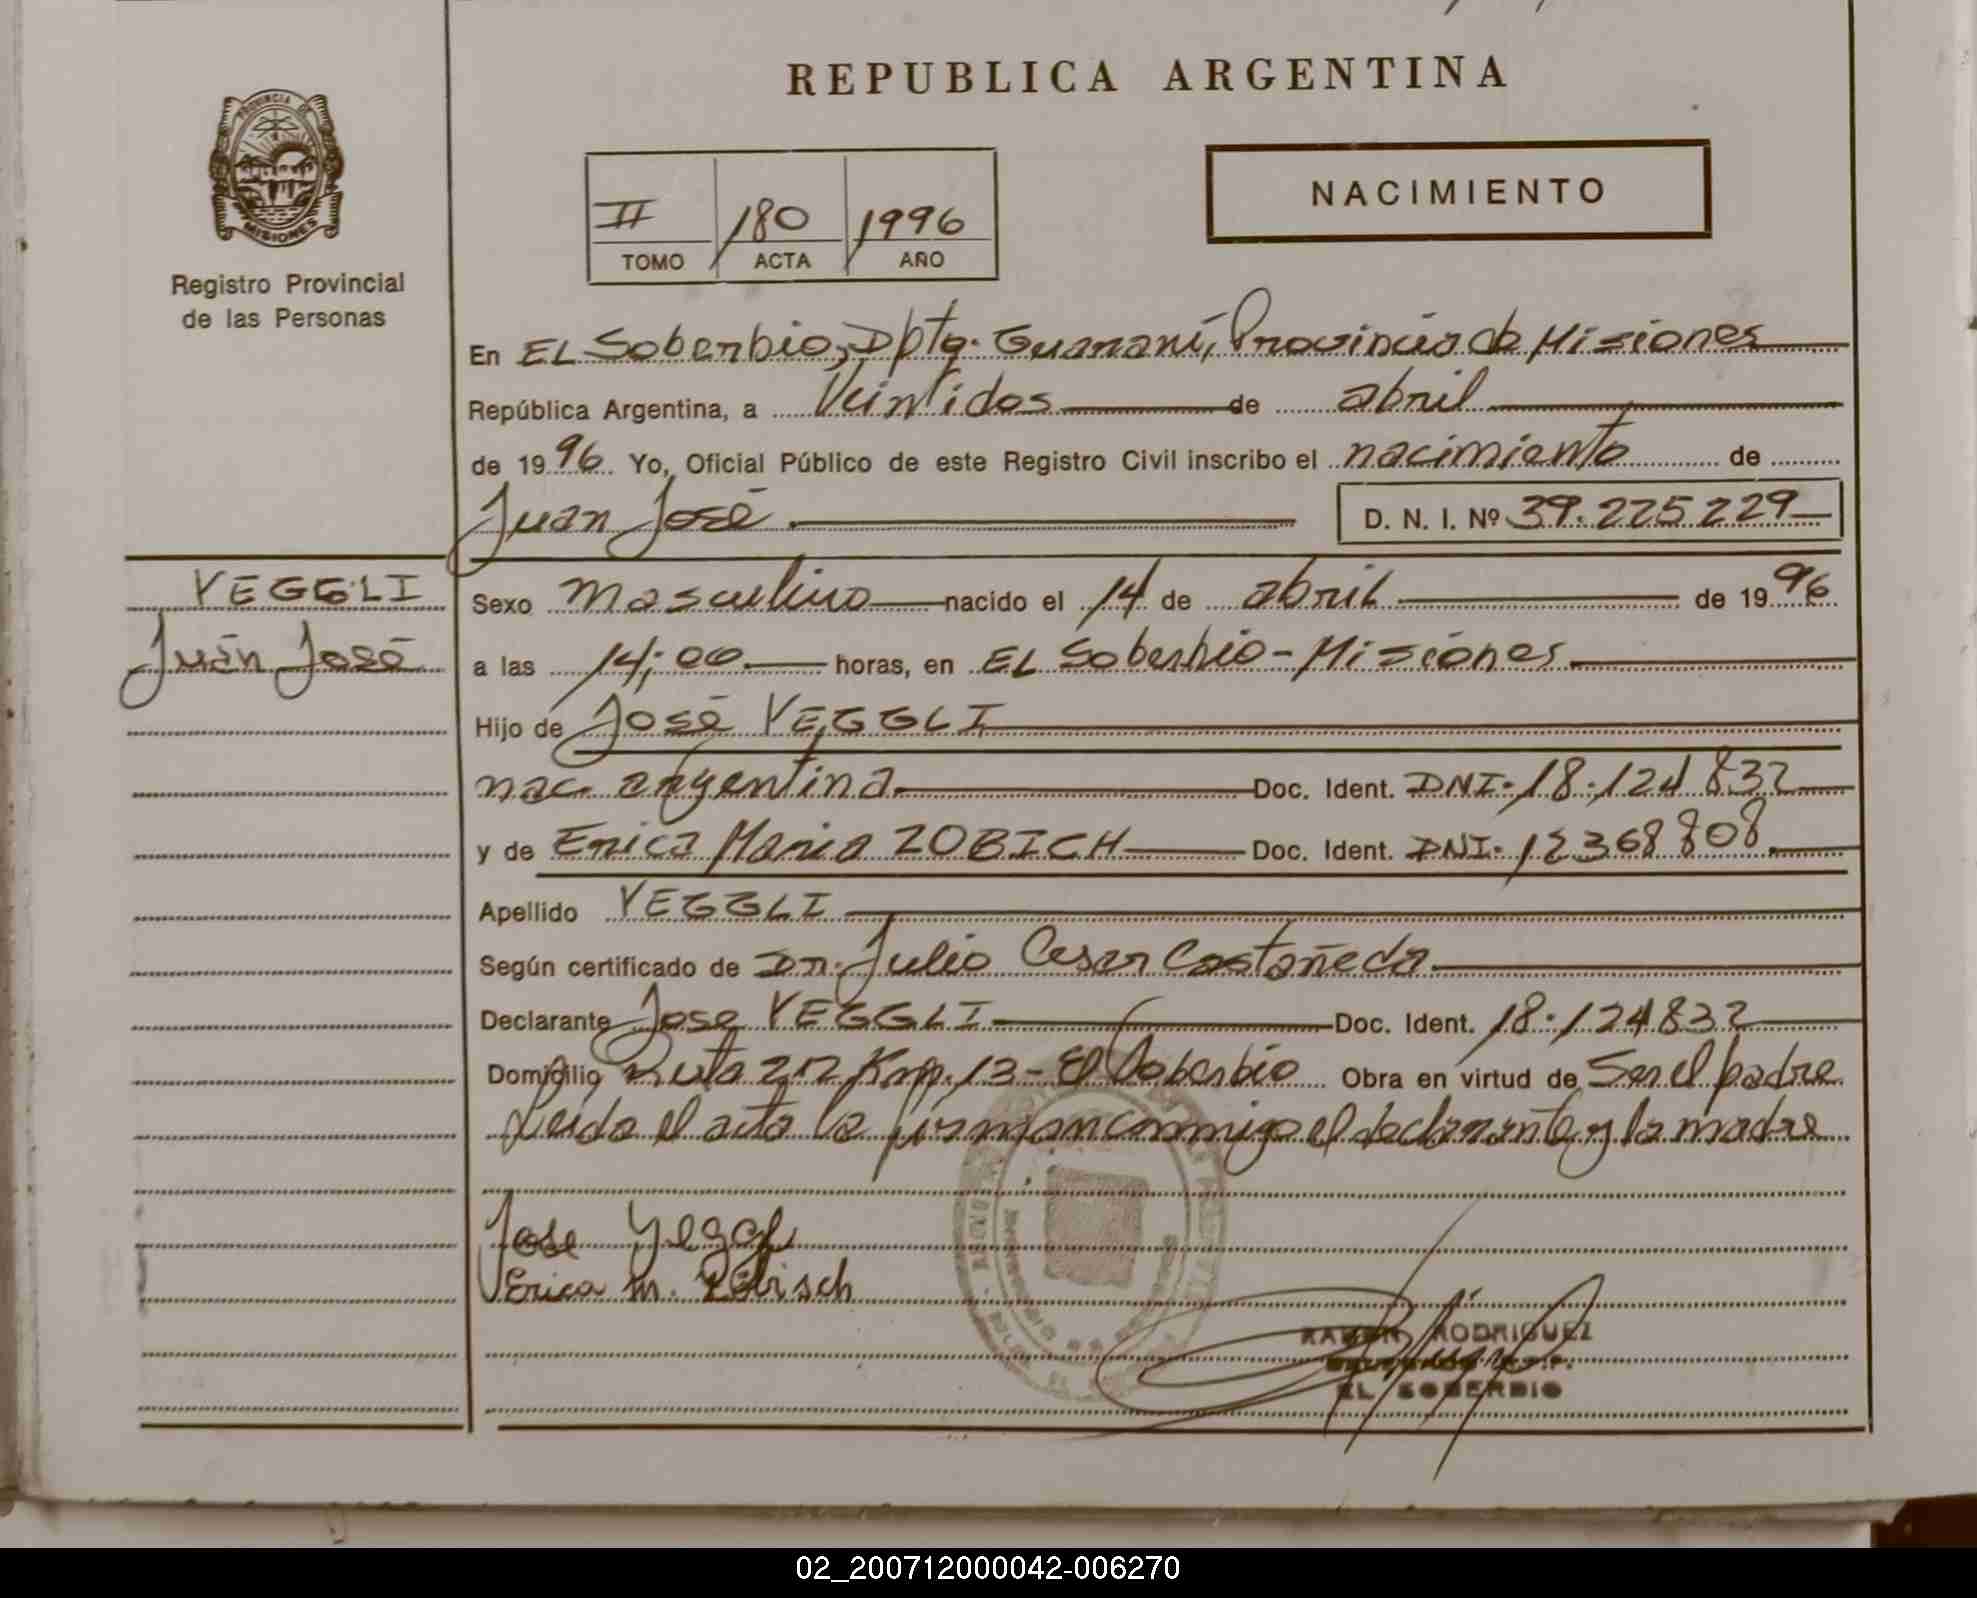 REPUBLICA ARGENTINA
PROVINCIA DE
MISIONES
Registro Provincial
de las Personas
II 180 1996
TOMO ACTA AÑO
NACIMIENTO
En EL Soberbio, Dpto. Guaraní, Provincia de Misiones
República Argentina, a Veintidos de abril
de 1996 Yo, Oficial Público de este Registro Civil inscribo el nacimiento de
Juan José D. N. I. Nº 39.225.229
YEGGLI
Juan José
Sexo masculino nacido el 14 de abril de 1996
a las 14:00 horas, en EL Soberbio - Misiones
Hijo de José YEGGLI
nac. argentina Doc. Ident. DNI. 18.124.832
y de Erica Maria ZOBICH Doc. Ident. DNI. 12368808
Apellido YEGGLI
Según certificado de Dr. Julio Cesar Castañeda
Declarante Jose YEGGLI Doc. Ident. 18.124832
Domicilio Ruta 212 Km. 13 - El Soberbio Obra en virtud de Ser el padre
Leida el acta la firman conmigo el declarante y la madre
Jose
Erica m.
RAMON RODRIGUEZ
EL SOBERBIO
02_200712000042-006270